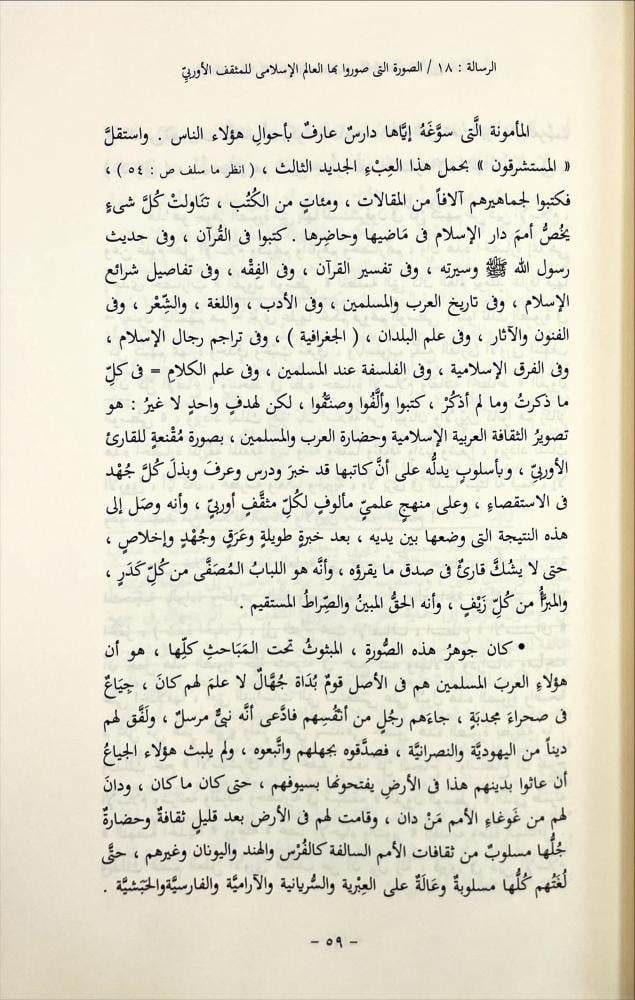 الرسالة : ١٨ / الصورة التى صوروا بها العالم الإسلامى للمثقف الأوربىّ
المأمونة الَّتى سوَّغَهُ إيَّاها دارسٌ عارفٌ بأحوالِ هؤلاء الناس . واستقلَّ
« المستشرقون » بحمل هذا العِبْءِ الجديد الثالث ، ( انظر ما سلف ص : ٥٤ ) ،
فكتبوا لجماهيرهم آلافاً من المقالات ، ومئاتٍ من الكُتُب ، تنَاولتْ كُلَّ شىءٍ
يخُصُّ أممَ دار الإسلام فى مَاضيها وحاضِرها . كتبوا فى القُرآن ، وفى حديث
رسول الله ﷺ وسيرتِه ، وفى تفسير القرآن ، وفى الفِقْه ، وفى تفاصيل شرائع
الإسلام ، وفى تاريخ العرب والمسلمين ، وفى الأدب ، واللغة ، والشِّعْر ، وفى
الفنون والآثار ، وفى علم البلدان ، ( الجغرافية ) ، وفى تراجم رجال الإسلام ،
وفى الفرق الإسلامية ، وفى الفلسفة عند المسلمين ، وفى علم الكلامِ = فى كلِّ
ما ذكرتُ وما لم أذكُرْ ، كتبوا وألَّفُوا وصنَّفُوا ، لكن لهدفٍ واحدٍ لا غيرُ : هو
تصويرُ الثقافة العربية الإسلامية وحضارة العرب والمسلمين ، بصورة مُقْنعةٍ للقارئ
الأوربىّ ، وبأسلوبٍ يدلُّه على أنَّ كاتبها قد خبرَ ودرس وعرفَ وبذلَ كُلَّ جُهْد
فى الاستقصاءِ ، وعلى منهجٍ علمىٍّ مألوفٍ لكُلِّ مثقَّفٍ أوربىٍّ ، وأنه وصَل إلى
هذه النتيجة التى وضعها بين يديه ، بعد خبرةٍ طويلةٍ وعَرَقٍ وجُهْدٍ وإخلاصٍ ،
حتى لا يشُكَّ قارئٌ فى صدق ما يقرؤه ، وأنَّه هو اللبابُ المُصَفَّى من كُلِّ كَدَرٍ ،
والمبرَّأُ من كُلِّ زَيْفٍ ، وأنه الحقُّ المبينُ والصِّراطُ المستقيم .
• كان جوهرُ هذه الصُّورةِ ، المبثوثُ تحت المَبَاحثِ كلِّها ، هو أن
هؤلاءِ العربَ المسلمين هم فى الأصل قومٌ بُدَاة جُهَّالٌ لا علمَ لهم كانَ ، جِيَاعٌ
فى صحراءَ مجدبَةٍ ، جاءَهم رجُلٍ من أنْفُسِهم فادَّعى أنَّه نبىٌّ مرسلٌ ، ولَفَّق لهم
ديناً من اليهوديَّة والنصرانيَّة ، فصدَّقوه بجهلهم واتَّبعوه ، ولم يلبث هؤلاء الجياعُ
أن عاثوا بدينهم هذا فى الأرضِ يفتحونها بسيوفهم ، حتى كان ما كان ، ودانَ
لهم من غَوغاءِ الأمم مَنْ دان ، وقامت لهم فى الأرض بعد قليلٍ ثقافةٌ وحضارةٌ
جُلُّها مسلوبٌ من ثقافات الأمم السالفة كالفُرْس والهند واليونان وغيرهم ، حتَّى
لُغَتُهم كُلُّها مسلوبةٌ وعَالَةٌ على العِبْرية والسُّريانية والآراميَّة والفارسيَّةوالحَبَشيَّة .
– ٥٩ –